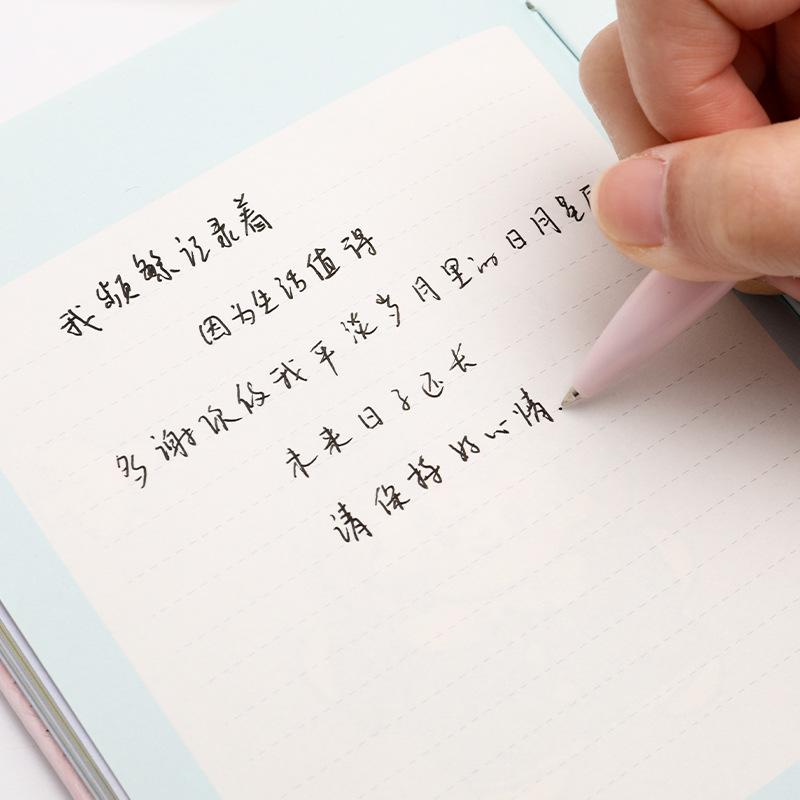 我频繁记录着
因为生活值得
多谢你给我平淡岁月里的日月星
未来日子还长
请保持好心情.